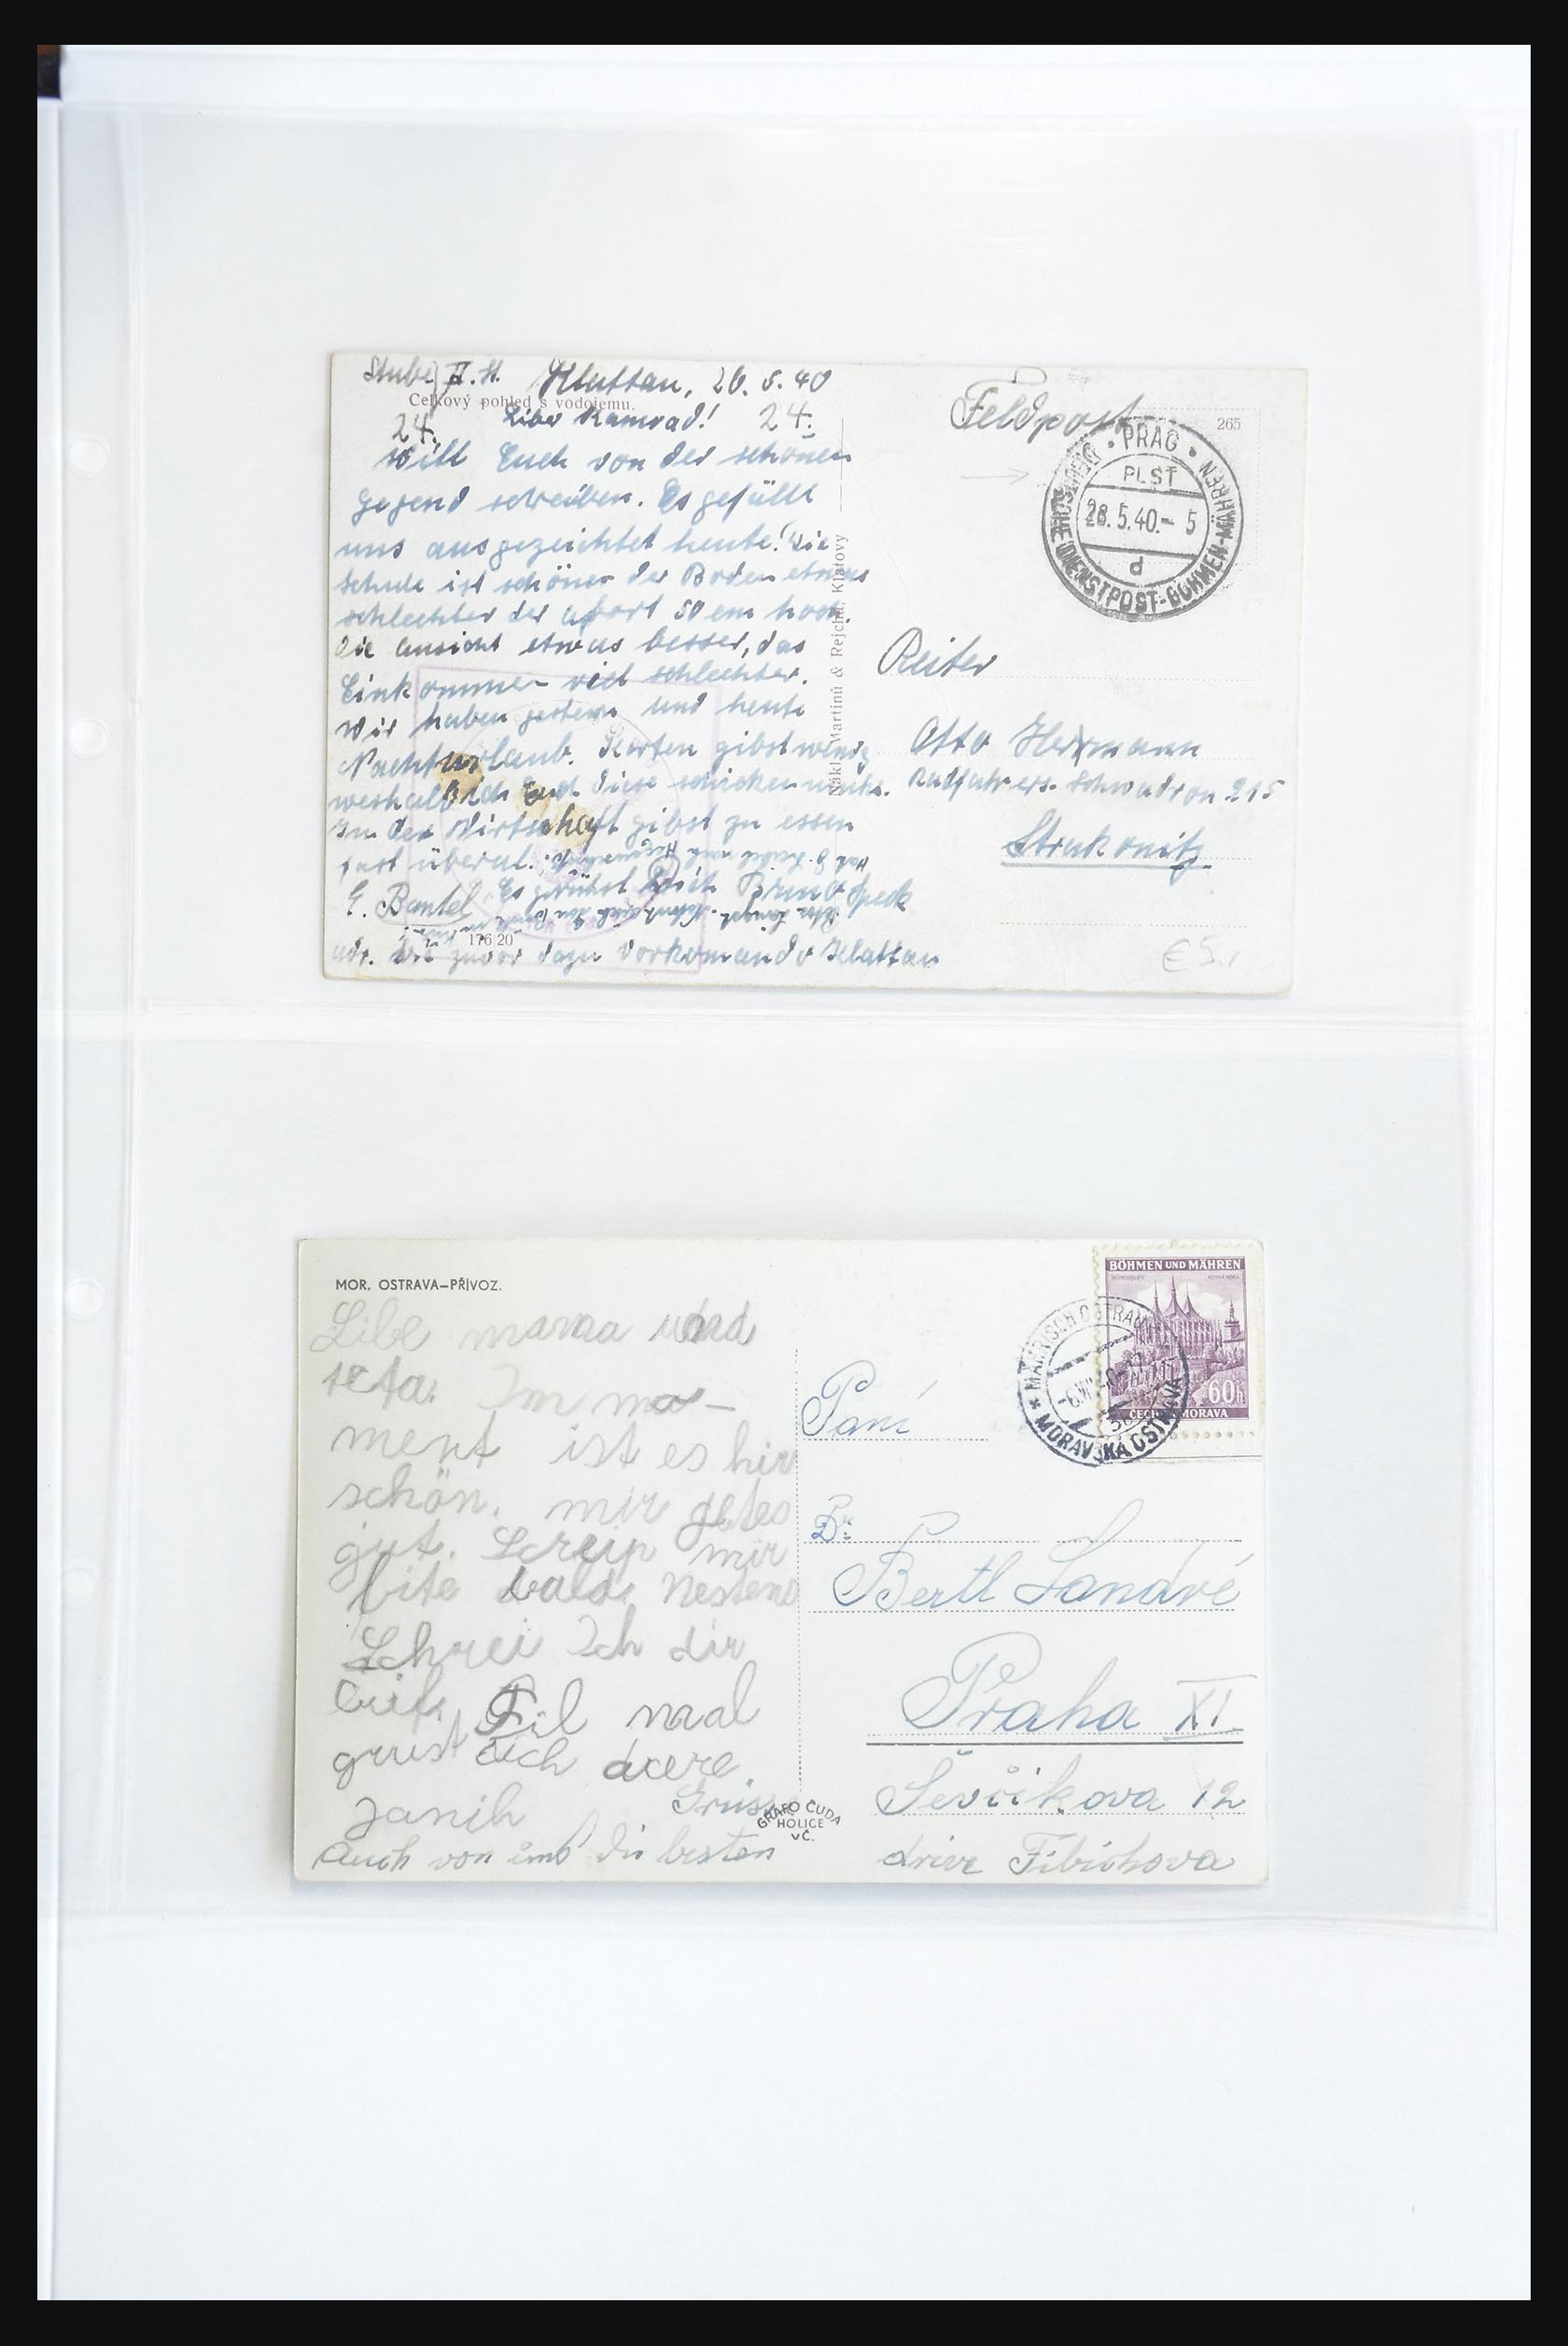 Stube II. St. Klattau, 26.5.40
Celkový pohled s vodojemu.
24. Liber Kamrad! 24.
Will Euch von der schönen
Gegend schreiben. Es gefällt
uns ausgezeichtet heute! Die
Schule ist schöner der Boden etwas
schlechter der abort 50 cm hoch.
Die Ansicht etwas besser, das
Einkommen viel schlechter.
Wir haben gestern und heute
Nachturlaub. Karten gibst wenig
weshalb ich Euch diese schicken
In der Wirtschaft gibst zu essen
fast überal.
E. Bantel. Es grüßst Euch Bruno Speck
176 20
adr. wie zuvor dazu Vorkomando Klattau
Nákl. Martinů & Rejcha, Klatovy
Feldpost
265
PRAG
PLST
28.5.40.- 5
d
DEUTSCHE DIENSTPOST-BÖHMEN-MÄHREN
Reiter
Otto Herrmann
Radfahrers. Schwadron 215
Strakonitz
€ 5.,
MOR. OSTRAVA–PŘÍVOZ.
Libe mama und
teta. Im mo-
ment ist es hir
schön. mir getes
gut. Screip mir
bite bald. Nestens
Schrei Ich dir
Fil mal
grust dich
Janih Grüsse
Auch von die besten
GRAFO ČUDA
HOLICE
V Č.
BÖHMEN UND MÄHREN
60h
ČECHY MORAVA
MÄHRISCH OSTRAU
MORAVSKÁ OSTRAVA
Paní
Dr.
Bertl Landré
Praha XI
Ševčikova 12
drive Fibichova